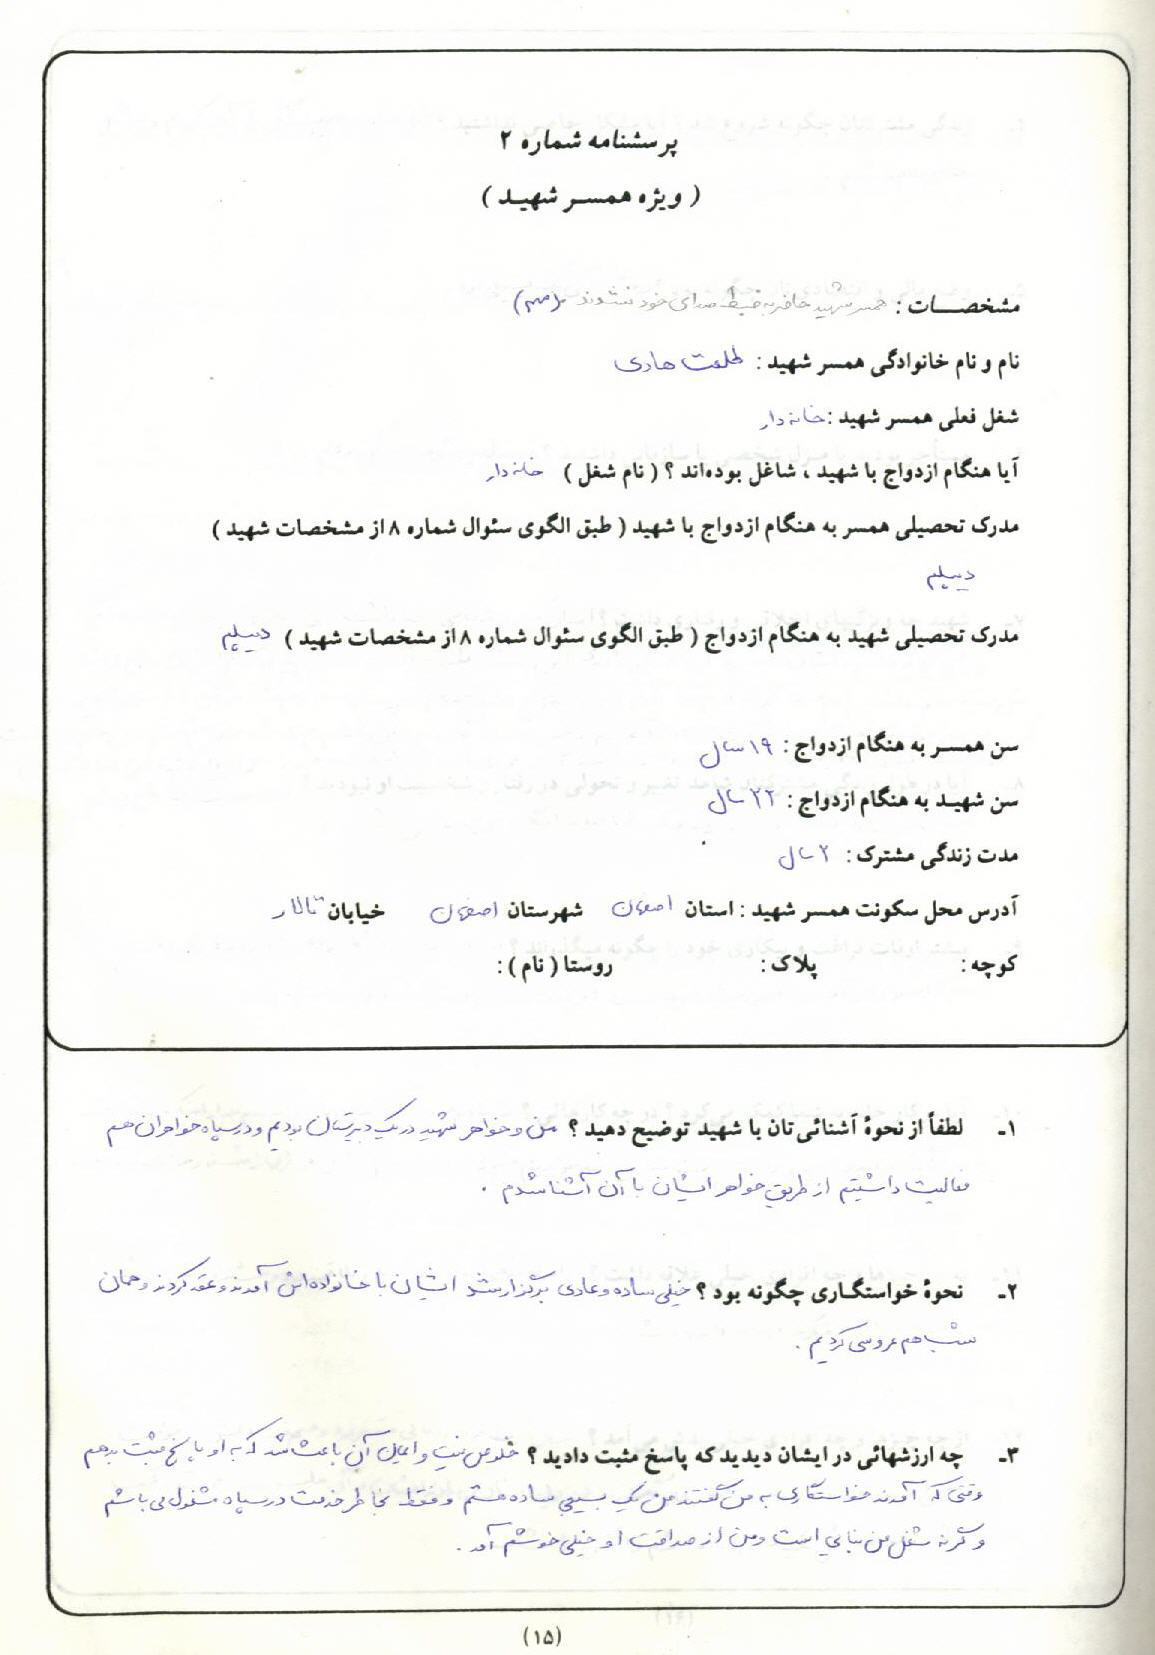 پرسشنامه شماره ۲
( ویژه همسر شهید )
مشخصات : همسر شهید حاضر به ضبط صدای خود نشدند (مهم)
نام و نام خانوادگی همسر شهید : طلعت هادی
شغل فعلی همسر شهید : خانه دار
آیا هنگام ازدواج با شهید ، شاغل بوده‌اند ؟ ( نام شغل ) خانه دار
مدرک تحصیلی همسر به هنگام ازدواج با شهید ( طبق الگوی سئوال شماره ۸ از مشخصات شهید )
دیپلم
مدرک تحصیلی شهید به هنگام ازدواج ( طبق الگوی سئوال شماره ۸ از مشخصات شهید ) دیپلم
سن همسر به هنگام ازدواج : ۱۹ سال
سن شهید به هنگام ازدواج : ۲۲ سال
مدت زندگی مشترک : ۲ سال
آدرس محل سکونت همسر شهید : استان اصفهان شهرستان اصفهان خیابان تالار
کوچه : پلاک : روستا ( نام ) :
۱ـ لطفاً از نحوهٔ آشنائی تان با شهید توضیح دهید ؟ من و خواهر شهید در یک دبیرستان بودیم و در سپاه خواهران هم
فعالیت داشتیم از طریق خواهر ایشان با آن آشنا شدم .
۲ـ نحوهٔ خواستگاری چگونه بود ؟ خیلی ساده و عادی برگزار شد ایشان با خانواده اش آمدند و عقد کردند و همان
شب هم عروسی کردیم .
۳ـ چه ارزشهائی در ایشان دیدید که پاسخ مثبت دادید ؟ خلوص نیت و ایمان آن باعث شد که به او پاسخ مثبت بدهم
وقتی که آمدند خواستگاری به من گفتند من یک بسیجی ساده هستم و فقط بخاطر خدمت در سپاه مشغول می باشم
و گرنه شغل من بنایی است و من از صداقت او خیلی خوشم آمد .
(۱۵)